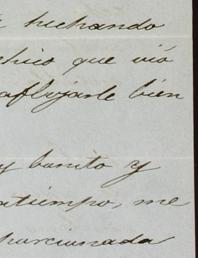 luchando
chico que vió
aflojarle bien
y bonito y
atiempo, me